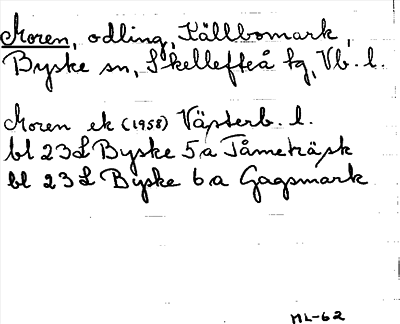 Moren, odling, Källbomark,
Byske sn, Skellefteå kg, Vb. l.
Moren ek (1958) Västerb. l.
bl 23L Byske 5a Tåmeträsk
bl 23L Byske 6a Gagsmark
ML-62